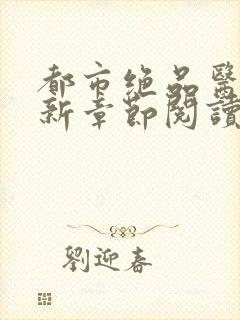 都市绝品醫
新章節閱讀
劉迎春